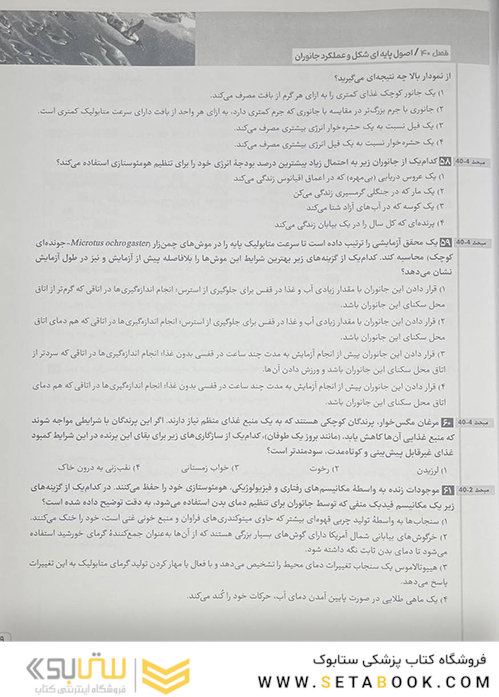 فصل ۴۰ / اصول پایه ای شکل و عملکرد جانوران
از نمودار بالا چه نتیجه‌ای می‌گیرید؟
۱) یک جانور کوچک غذای کمتری را به ازای هر گرم از بافت مصرف می‌کند.
۲) جانوری با جرم بزرگ‌تر در مقایسه با جانوری که جرم کمتری دارد، به ازای هر واحد از بافت دارای سرعت متابولیک کمتری است.
۳) یک فیل نسبت به یک حشره‌خوار انرژی بیشتری مصرف می‌کند.
۴) یک حشره‌خوار نسبت به یک فیل انرژی بیشتری مصرف می‌کند.
مبحث 4-40 ۵۸ کدام‌یک از جانوران زیر به احتمال زیاد بیشترین درصد بودجهٔ انرژی خود را برای تنظیم هومئوستازی استفاده می‌کند؟
۱) یک عروس دریایی (بی‌مهره) که در اعماق اقیانوس زندگی می‌کند
۲) یک مار که در جنگلی گرمسیری زندگی می‌کن
۳) یک کوسه که در آب‌های آزاد شنا می‌کند
۴) پرنده‌ای که کل سال را در یک بیابان زندگی می‌کند
مبحث 4-40 ۵۹ یک محقق آزمایشی را ترتیب داده است تا سرعت متابولیک پایه را در موش‌های چمن‌زار (Microtus ochrogaster-جونده‌ای
کوچک) محاسبه کند. کدام‌یک از گزینه‌های زیر بهترین شرایط این موش‌ها را بلافاصله پیش از آزمایش و نیز در طول آزمایش
نشان می‌دهد؟
۱) قرار دادن این جانوران با مقدار زیادی آب و غذا در قفس برای جلوگیری از استرس؛ انجام اندازه‌گیری‌ها در اتاقی که گرم‌تر از اتاق
محل سکنای این جانوران باشد.
۲) قرار دادن این جانوران با مقدار زیادی آب و غذا در قفس برای جلوگیری از استرس؛ انجام اندازه‌گیری‌ها در اتاقی که هم دمای اتاق
محل سکنای این جانوران باشد.
۳) قرار دادن این جانوران پیش از انجام آزمایش به مدت چند ساعت در قفسی بدون غذا؛ انجام اندازه‌گیری‌ها در اتاقی که سردتر از
اتاق محل سکنای این جانوران باشد و ورزش دادن آن‌ها.
۴) قرار دادن این جانوران پیش از انجام آزمایش به مدت چند ساعت در قفسی بدون غذا؛ انجام اندازه‌گیری‌ها در اتاقی که هم دمای
اتاق محل سکنای این جانوران باشد.
مبحث 4-40 ۶۰ مرغان مگس‌خوار، پرندگان کوچکی هستند که به یک منبع غذای منظم نیاز دارند. اگر این پرندگان با شرایطی مواجه شوند
که منبع غذایی آن‌ها کاهش یابد، (مانند بروز یک طوفان)، کدام‌یک از سازگاری‌های زیر برای بقای این پرنده در این شرایط کمبود
غذای غیرقابل پیش‌بینی و کوتاه‌مدت، سودمندتر است؟
۱) لرزیدن ۲) رخوت ۳) خواب زمستانی ۴) نقب‌زنی به درون خاک
مبحث 2-40 ۶۱ موجودات زنده به واسطهٔ مکانیسم‌های رفتاری و فیزیولوژیکی، هومئوستازی خود را حفظ می‌کنند. در کدام‌یک از گزینه‌های
زیر یک مکانیسم فیدبک منفی که توسط جانوران برای تنظیم دمای بدن استفاده می‌شود، به دقت توضیح داده شده است؟
۱) سنجاب‌ها به واسطهٔ تولید چربی قهوه‌ای بیشتر که حاوی میتوکندری‌های فراوان و منبع خونی غنی است، خود را خنک می‌کنند.
۲) خرگوش‌های بیابانی شمال آمریکا دارای گوش‌های بسیار بزرگی هستند که از آن‌ها به‌عنوان جمع‌کنندهٔ گرمای خورشید استفاده
می‌شود تا دمای بدن ثابت نگه داشته شود.
۳) هیپوتالاموس یک سنجاب تغییرات دمای محیط را تشخیص می‌دهد و با فعال یا مهار کردن تولید گرمای متابولیک به این تغییرات
پاسخ می‌دهد.
۴) یک ماهی طلایی در صورت پایین آمدن دمای آب، حرکات خود را کُند می‌کند.
فروشگاه کتاب پزشکی ستابوک
WWW.SETABOOK.COM
ستابوک
فروشگاه اینترنتی کتاب